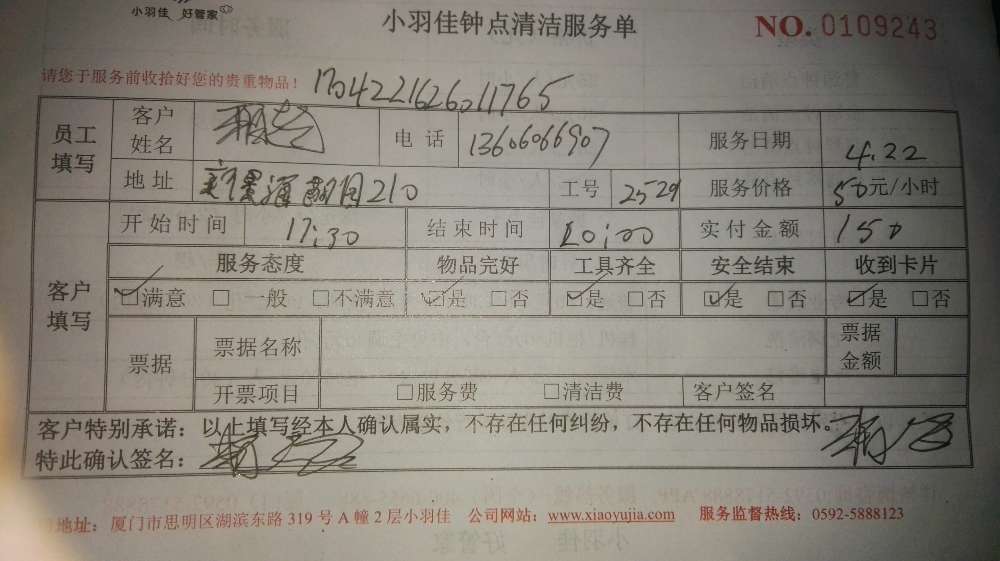 小羽佳 好管家
小羽佳钟点清洁服务单
NO. 0109243
请您于服务前收拾好您的贵重物品！
1704221626011765
员工填写 客户姓名 电话 13606066907 服务日期 4.22
地址 210 工号 2529 服务价格 50元/小时
客户填写 开始时间 17:30 结束时间 20:00 实付金额 150
服务态度 物品完好 工具齐全 安全结束 收到卡片
☑满意 □一般 □不满意 ☑是 □否 ☑是 □否 ☑是 □否 ☑是 □否
票据 票据名称 票据金额
开票项目 □服务费 □清洁费 客户签名
客户特别承诺：以上填写经本人确认属实，不存在任何纠纷，不存在任何物品损坏。
特此确认签名：
地址：厦门市思明区湖滨东路 319 号 A 幢 2 层小羽佳 公司网站：www.xiaoyujia.com 服务监督热线：0592-5888123